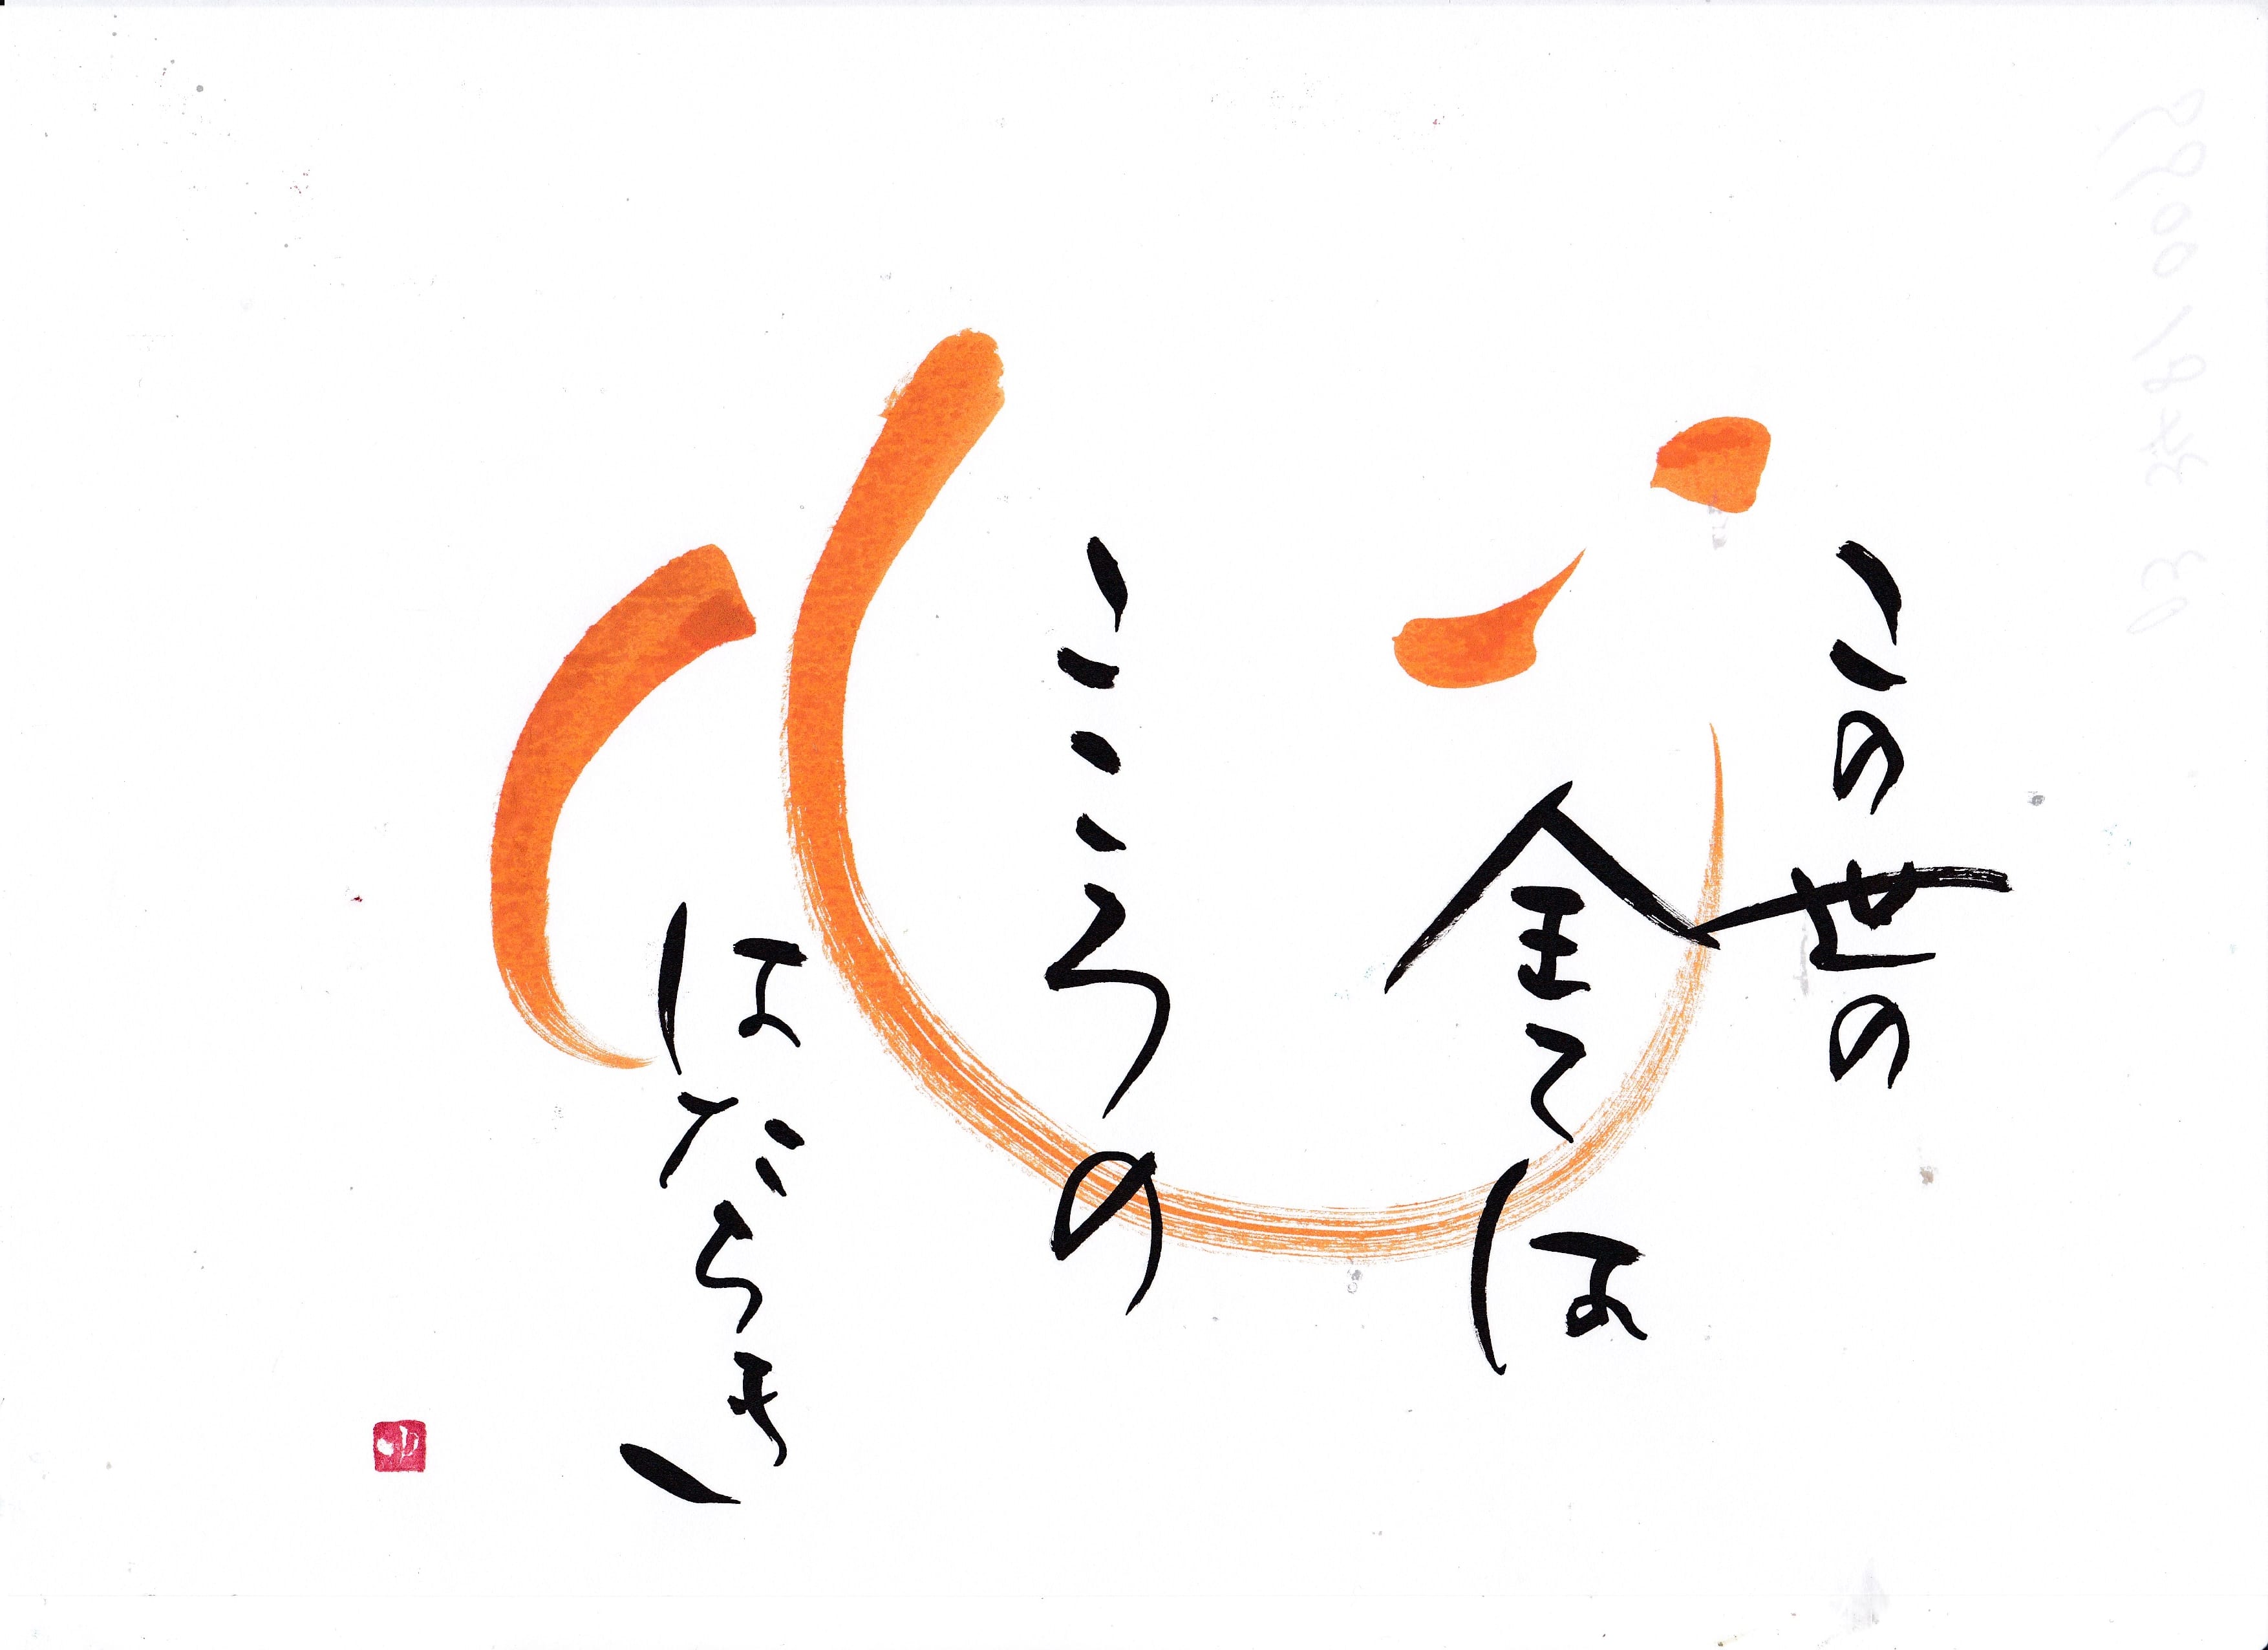 心
この世の
全ては
こころの
はたらき